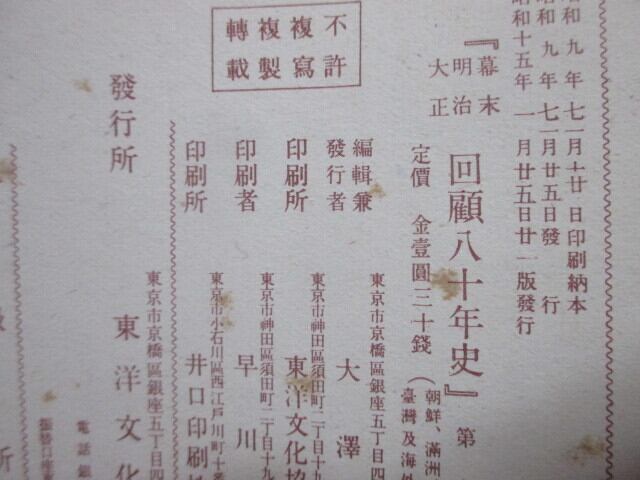 昭和九年七月十廿日印刷納本
昭和九年七月廿五日發行
昭和十五年一月廿五日廿一版發行
『幕末
明治
大正
回顧八十年史』第
定價 金壹圓三十錢
(朝鮮、滿洲
臺灣及海外
編輯兼
發行者
東京市京橋區銀座五丁目四
大澤
印刷所
東京市神田區須田町二丁目十九
東洋文化協
印刷者
東京市神田區須田町二丁目十九
早川
印刷所
東京市小石川區西江戸川町十番
井口印刷
不許
複寫
複製
轉載
發行所
東京市京橋區銀座五丁目四
東洋文化
電話銀
振替口座東
所